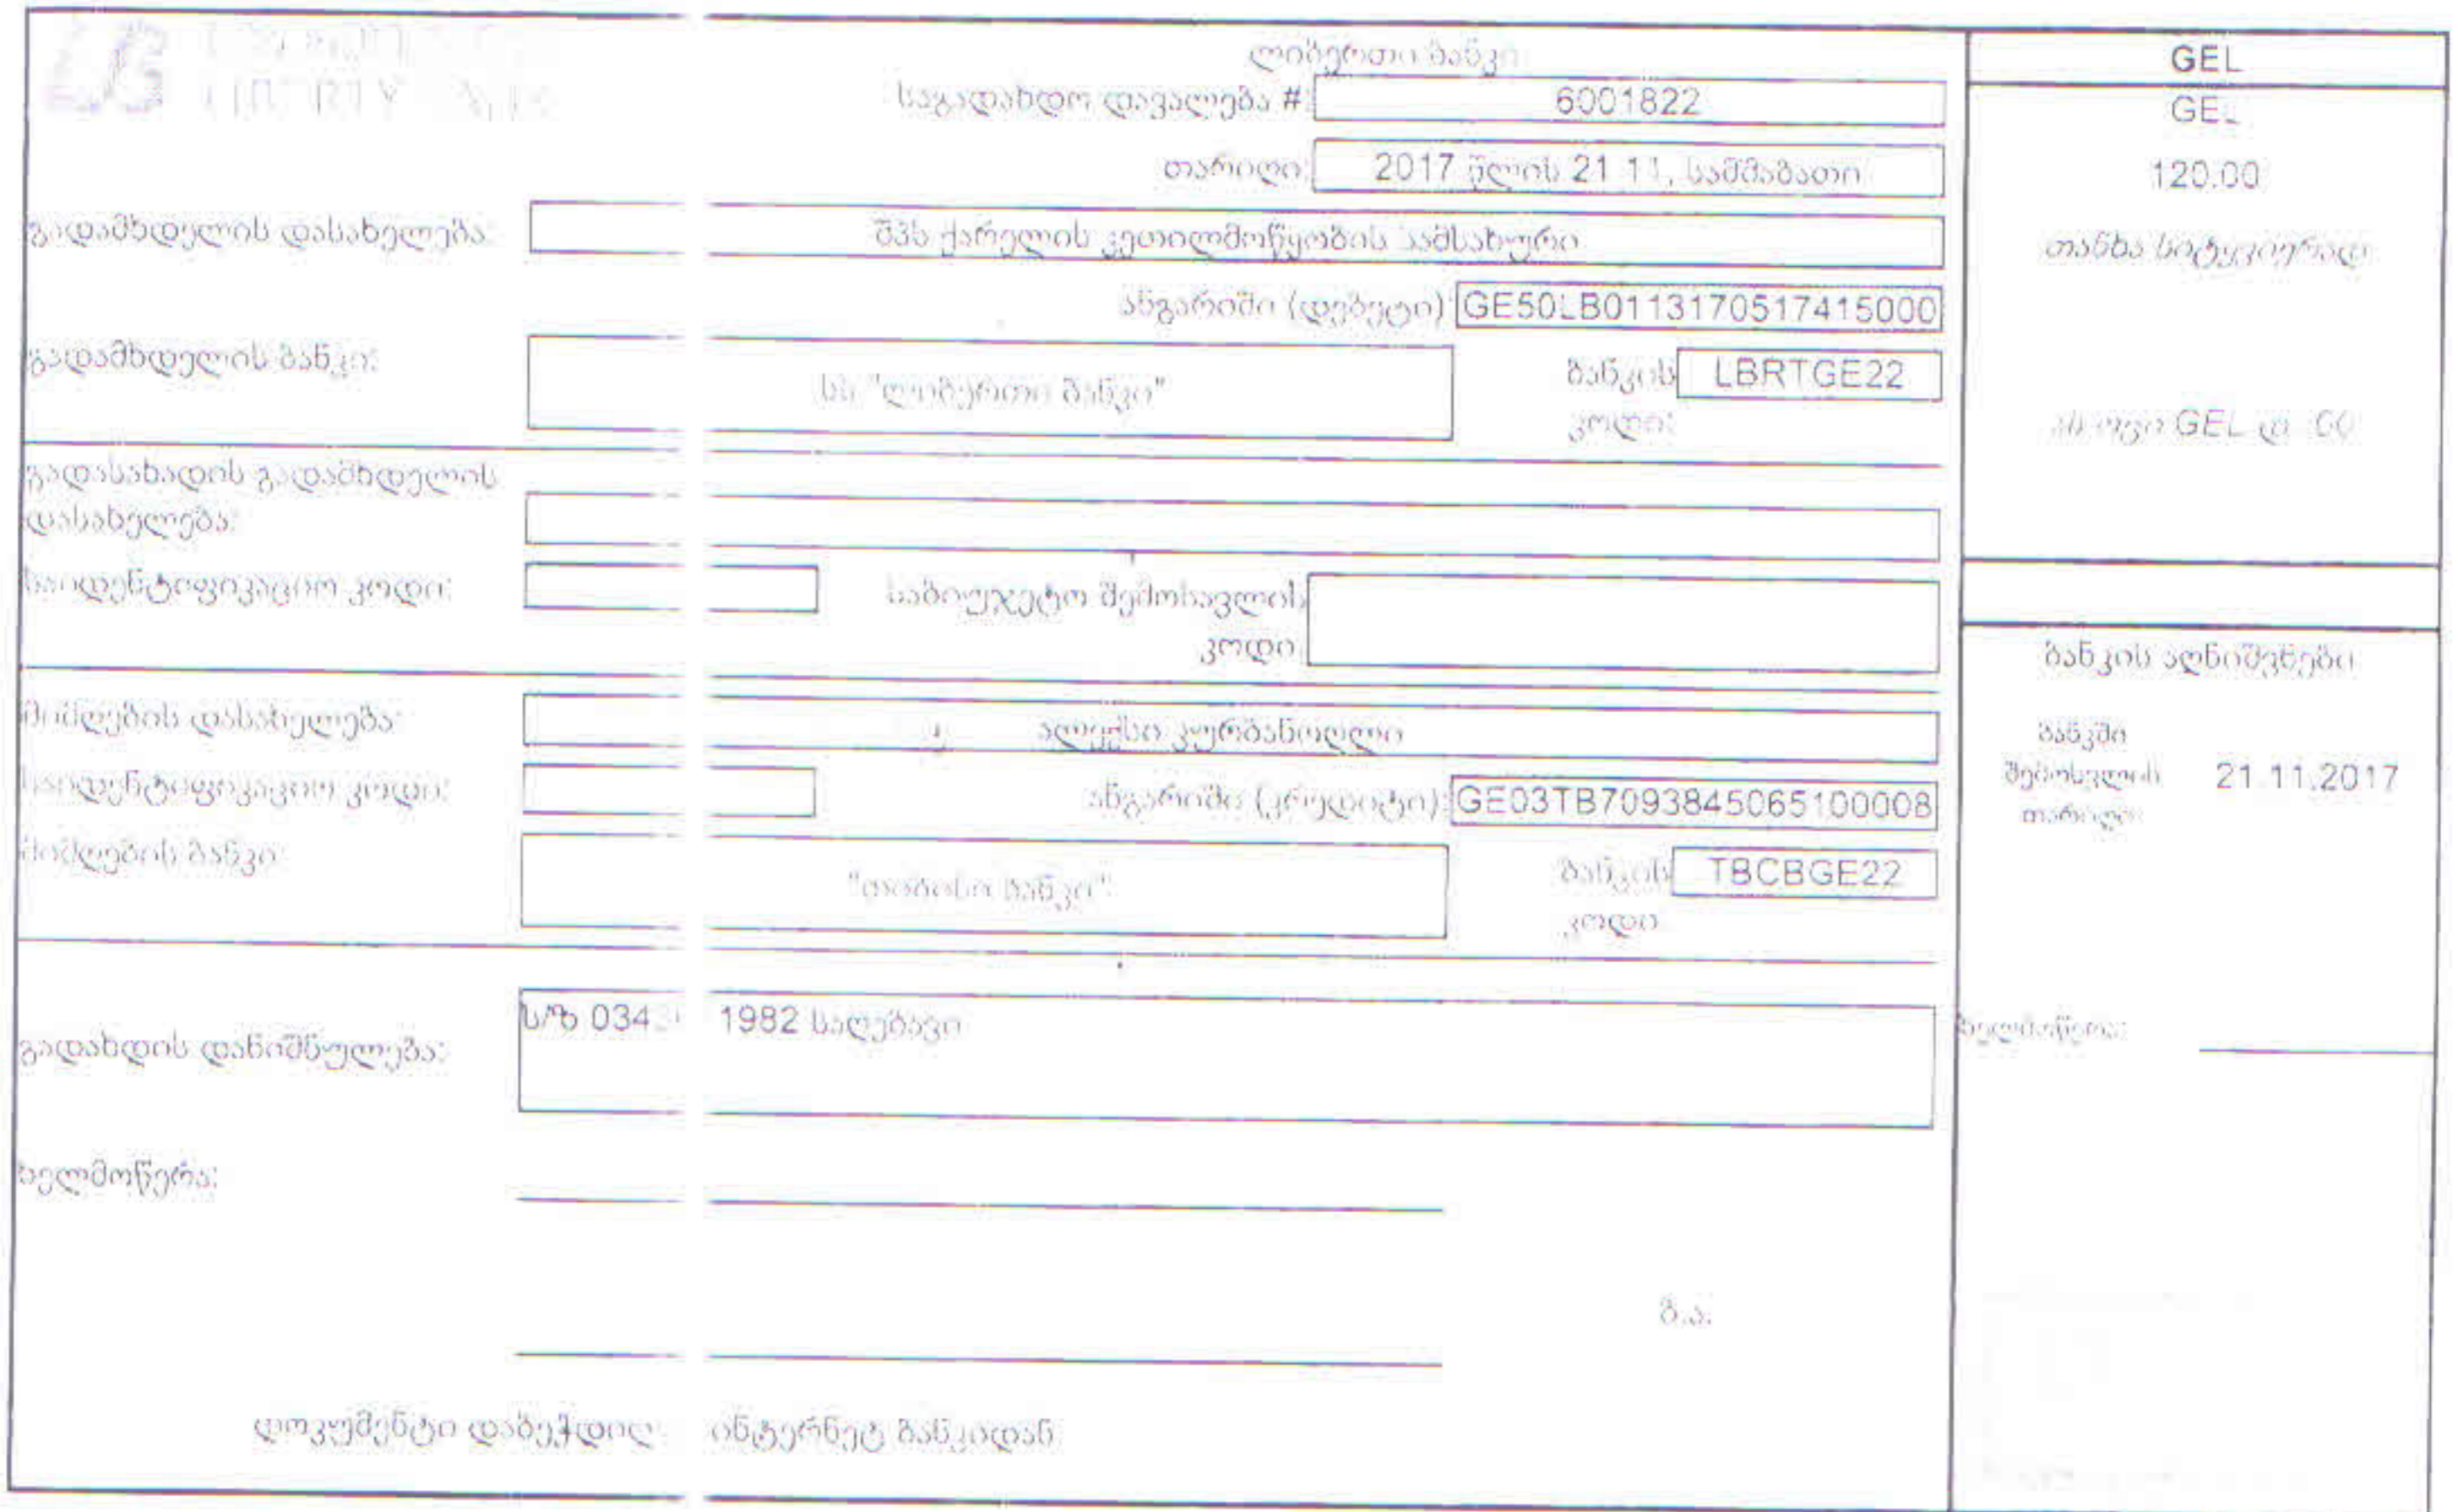 ლიბერთი ბანკი
საგადახდო დავალება #: 6001822
თარიღი: 2017 წლის 21 11, სამშაბათი
გადამხდელის დასახელება: შპს ქარელის კეთილმოწყობის სამსახური
ანგარიში (დებეტი): GE50LB0113170517415000
გადამხდელის ბანკი: სს "ლიბერთი ბანკი" ბანკის LBRTGE22
კოდი:
გადასახადის გადამხდელის
დასახელება:
საიდენტიფიკაციო კოდი: საბიუჯეტო შემოსავლის
კოდი:
მიმღების დასახელება: ალექსი კურბანოღლი
საიდენტიფიკაციო კოდი: ანგარიში (კრედიტი): GE03TB7093845065100008
მიმღების ბანკი: "თიბისი ბანკი" ბანკის TBCBGE22
კოდი:
გადახდის დანიშნულება: ს/ზ 034 1982 საღებავი
ხელმოწერა:
ბ.ა.
დოკუმენტი დაბეჭდილ ინტერნეტ ბანკიდან
GEL
GEL
120.00
თანხა სიტყვიერად
GEL და 00
ბანკის აღნიშვნები
ბანკში
შემოსვლის 21.11.2017
თარიღი:
ხელმოწერა: